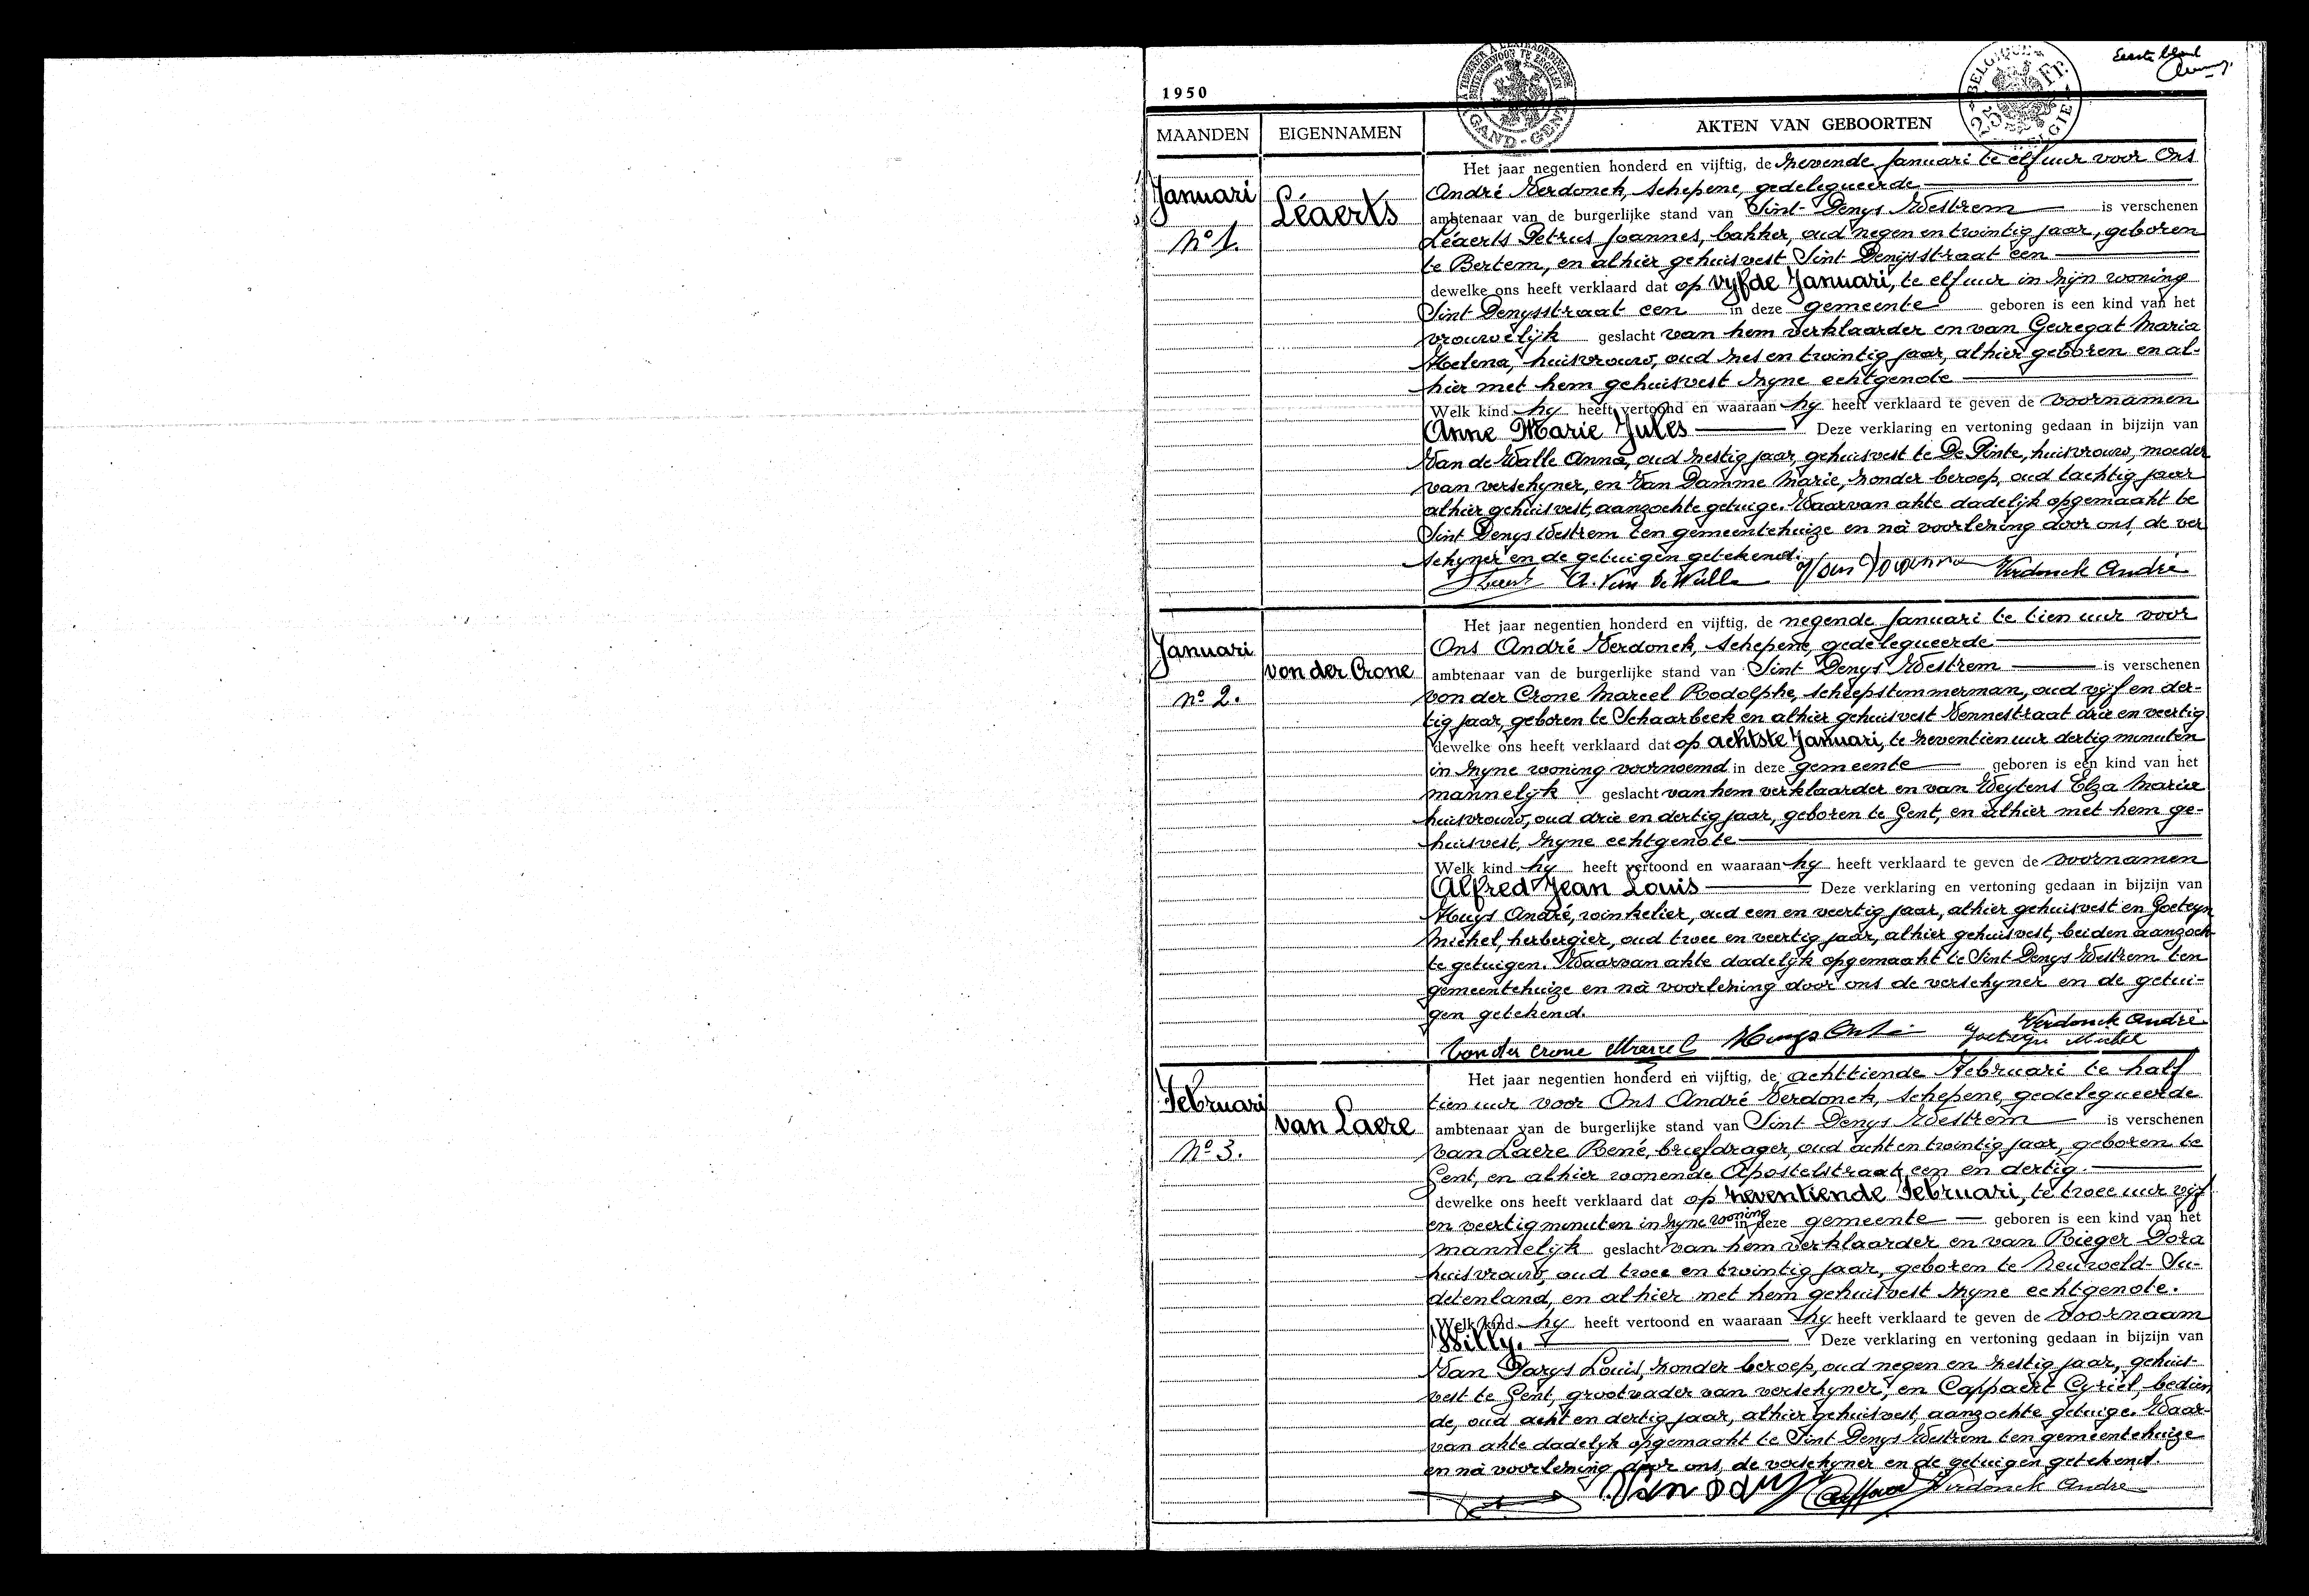 Eerste blad
1950
A TIMBRER A L'EXTRAORDINAIRE
BUITENGEWOON TE ZEGELEN
GAND - GENT
BELGIQUE
25 Fr.
BELGIE
MAANDEN EIGENNAMEN AKTEN VAN GEBOORTEN
Januari
No 1.
Léaerts
Het jaar negentien honderd en vijftig, de zevende Januari te elf uur voor Ons
André Verdonck, Schepene, gedelegueerde
ambtenaar van de burgerlijke stand van Sint-Denys Westrem is verschenen
Léaerts Petrus Joannes, bakker, oud negen en twintig jaar, geboren
te Bertem, en alhier gehuisvest Sint Denijsstraat een
dewelke ons heeft verklaard dat op vyfde Januari, te elf uur in zijn woning
Sint Denysstraat een in deze gemeente geboren is een kind van het
vrouwelijk geslacht van hem verklaarder en van Gevegat Maria
Helena, huisvrouw, oud zes en twintig jaar, alhier geboren en al-
hier met hem gehuisvest zyne echtgenote
Welk kind hy heeft vertoond en waaraan hy heeft verklaard te geven de voornamen
Anne Marie Jules Deze verklaring en vertoning gedaan in bijzijn van
Van de Walle Anna, oud zestig jaar, gehuisvest te De Pinte, huisvrouw, moeder
van verschyner, en Van Damme Marie, zonder beroep, oud tachtig jaar
alhier gehuisvest, aanzochte getuige. Waarvan akte dadelijk opgemaakt te
Sint Denys Westrem ten gemeentehuize en nà voorlezing door ons, de ver
schyner en de getuigen getekend.
A. Van De Walle Verdonck André
Januari
no 2.
von der Crone
Het jaar negentien honderd en vijftig, de negende Januari te tien uur voor
Ons André Verdonck, Schepene, gedelegueerde
ambtenaar van de burgerlijke stand van Sint Denys Westrem is verschenen
von der Crone Marcel Rodolphe, scheepstimmerman, oud vyf en der-
tig jaar, geboren te Schaarbeek en alhier gehuisvest Vennestraat drie en veertig
dewelke ons heeft verklaard dat op achtste Januari, te zeventien uur dertig minuten
in zyne woning voornoemd in deze gemeente geboren is een kind van het
mannelijk geslacht van hem verklaarder en van Weytens Elza Marie
huisvrouw, oud drie en dertig jaar, geboren te Gent, en alhier met hem ge-
huisvest, zyne echtgenote
Welk kind hy heeft vertoond en waaraan hy heeft verklaard te geven de voornamen
Alfred Jean Louis Deze verklaring en vertoning gedaan in bijzijn van
Huys André, winkelier, oud een en veertig jaar, alhier gehuisvest en Goeteyn
Michel, herbergier, oud twee en veertig jaar, alhier gehuisvest, beiden aanzoch-
te getuigen. Waarvan akte dadelijk opgemaakt te Sint Denys Westrem ten
gemeentehuize en nà voorlezing door ons de verschyner en de getui-
gen getekend.
Von der Crone Marcel Huys André Goeteyn Michel Verdonck André
Februari
No 3.
van Laere
Het jaar negentien honderd en vijftig, de achttiende Februari te half
tien uur voor Ons André Verdonck, Schepene, gedelegueerde
ambtenaar van de burgerlijke stand van Sint Denys Westrem is verschenen
van Laere René, briefdrager, oud acht en twintig jaar, geboren te
Gent, en alhier wonende Apostelstraat een en dertig.
dewelke ons heeft verklaard dat op zeventiende Februari, te twee uur vijf
en veertig minuten in zyne woning in deze gemeente geboren is een kind van het
mannelijk geslacht van hem verklaarder en van Rieger Dora
huisvrouw, oud twee en twintig jaar, geboren te Neuweld-Su-
detenland, en alhier met hem gehuisvest zyne echtgenote.
Welk kind hy heeft vertoond en waaraan hy heeft verklaard te geven de voornaam
Willy. Deze verklaring en vertoning gedaan in bijzijn van
Van Parys Louis, zonder beroep, oud negen en zestig jaar, gehuis-
vest te Gent, grootvader van verschyner, en Cappaert Cyriel, bedien
de, oud acht en dertig jaar, alhier gehuisvest, aanzochte getuige. Waar-
van akte dadelijk opgemaakt te Sint Denys Westrem ten gemeentehuize
en nà voorlezing door ons, de verschyner en de getuigen getekend.
Verdonck André